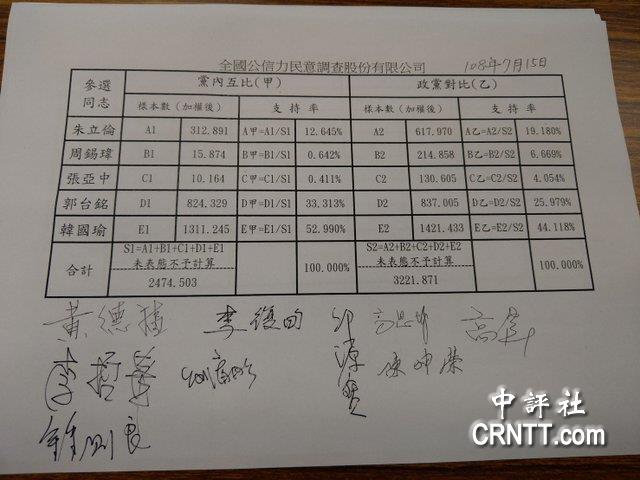 全國公信力民意調查股份有限公司 108年7月15日
參選同志 黨內互比(甲) 政黨對比(乙)
樣本數(加權後) 支持率 樣本數(加權後) 支持率
朱立倫 A1 312.891 A甲=A1/S1 12.645% A2 617.970 A乙=A2/S2 19.180%
周錫瑋 B1 15.874 B甲=B1/S1 0.642% B2 214.858 B乙=B2/S2 6.669%
張亞中 C1 10.164 C甲=C1/S1 0.411% C2 130.605 C乙=C2/S2 4.054%
郭台銘 D1 824.329 D甲=D1/S1 33.313% D2 837.005 D乙=D2/S2 25.979%
韓國瑜 E1 1311.245 E甲=E1/S1 52.990% E2 1421.433 E乙=E2/S2 44.118%
合計 S1=A1+B1+C1+D1+E1 100.000% S2=A2+B2+C2+D2+E2 100.000%
未表態不予計算 未表態不予計算
2474.503 3221.871
黃德 李復甸
中評社
CRNTT.com